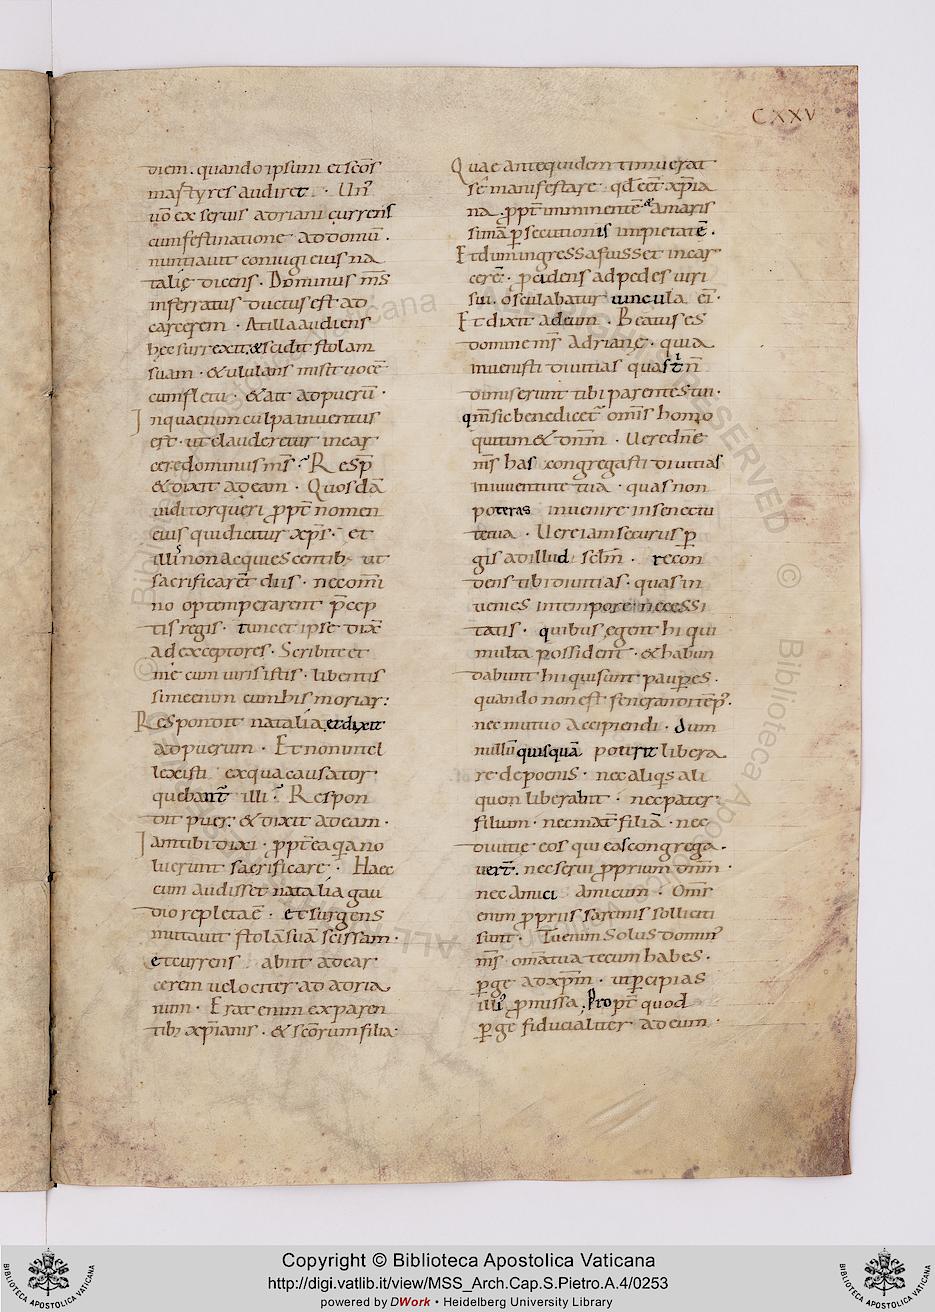 CXXV
diem. quando ipsum et sc̄os
martyres audiret. Un᷒
uō ex seruis adriani currens
cum festinatione ad domū.
nuntiauit coniugi eius na
talię dicens. Dominus m̄s
inferratus ductus est ad
carcerem. At illa audiens
hęc surrexit, & scidit stolam
suam. & ululans misit uocē
cum fletu. & ait ad puerū.
In qua enim culpa inuentus
est. ut clauderetur in car
cere dominus m̄s? Resp̄
& dixit ad eam. Quosdā
uidit torqueri ꝓpt̄ nomen
eius qui dicitur xp̄s. et
illis non adquiescentib; ut
sacrificarēt diis. nec omī
no optemperarent p̄cep
tis regis. tunc et ipse dix̄
ad exceptores. Scribite et
me cum uiris istis. libentis
sime enim cum his moriar:
Respondit natalia et dixit
ad puerum. Et non intel
lexisti ex qua causa tor
quebant̄ illi? Respon
dit puer. & dixit ad eam.
Iam tibi dixi. ꝓpt̄ ea q̄a no
luerunt sacrificare. Haec
cum audisset natalia gau
dio repleta ē. et surgens
mutauit stolā suā scissam.
et currens abiit ad car
cerem uelociter ad adria
num. Erat enim ex paren
tib; xp̄ianis. & sc̄orum filia.
Quae ante quidem timuerat
se manifestare qd̄ eēt xp̄ia
na. ꝓpt̄ imminentē & amaris
simā ꝑsecutionis impietatē.
Et dum ingressa fuisset in car
cerē. p̄cidens ad pedes uiri
sui. osculabatur uincula ei᷒.
Et dixit ad eum. Beatus es
domine m̄s adrianę. quia
inuenisti diuitias quas tibi n̄
dimiserunt tibi parentes tui.
qm̄ sic benedicet᷒ om̄is homo
qui timet dn̄m. Uere dn̄e
m̄s has congregasti diuitias
in iuuentute tua. quas non
poteras inuenire in senectu
te tua. Uere iam securus ꝑ
gis ad illud sc̄lm. recon
dens tibi diuitias. quas in
uenies in tempore necessi
tatis. quibus egent hi qui
multa possident. & habun
dabunt hii qui sunt pauꝑes.
quando non est fenerandi tēp᷒.
nec mutuo accipiendi. dum
nullū quisquā poterit libera
re de poenis. nec aliq̄s ali
quem liberabit. nec pater
filium. nec mat̄ filiā. nec
diuitię eos qui eas congrega
uer̄t. nec serui ꝓprium dn̄m.
nec amici amicum. Om̄s
enim ꝓpriis sarcinis solliciti
sunt. Tu enim solus domin᷒
m̄s. om̄a tua tecum habes.
ꝑge ad xp̄m. ut ꝑcipias
illi᷒ ꝓmissa. Propt̄ quod
ꝑge fiducialiter ad eum.
Copyright © Biblioteca Apostolica Vaticana
http://digi.vatlib.it/view/MSS_Arch.Cap.S.Pietro.A.4/0253
powered by DWork • Heidelberg University Library